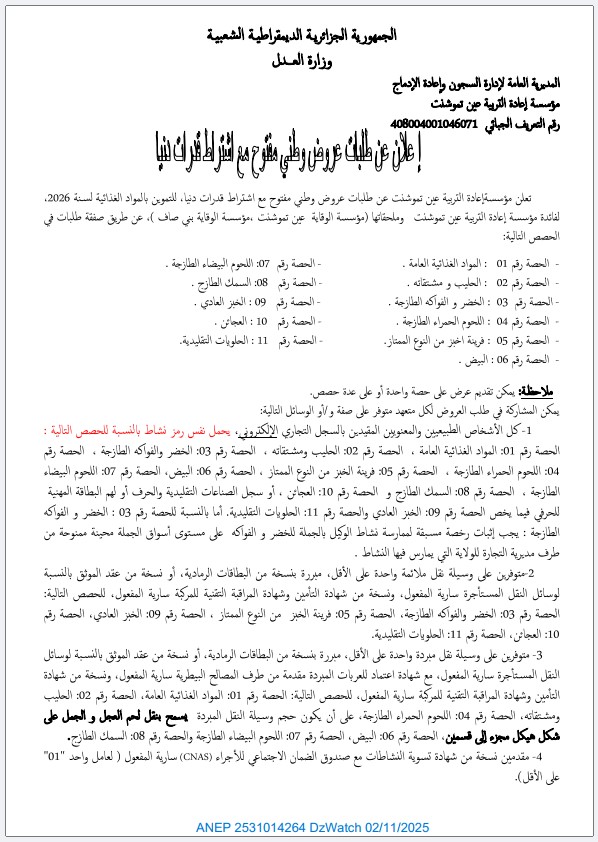 الجمهورية الجزائرية الديمقراطية الشعبية
وزارة العـــدل
المديرية العامة لإدارة السجون وإعادة الإدماج
مؤسسة إعادة التربية عين تموشنت
رقم التعريف الجبائي 408004001046071
إعلان عن طلبات عروض وطني مفتوح مع اشتراط قدرات دنيا
تعلن مؤسسةإعادة التربية عين تموشنت عن طلبات عروض وطني مفتوح مع اشتراط قدرات دنيا، للتموين بالمواد الغذائية لسنة 2026،
لفائدة مؤسسة إعادة التربية عين تموشنت وملحقاتها (مؤسسة الوقاية عين تموشنت ،مؤسسة الوقاية بني صاف )، عن طريق صفقة طلبات في
الحصص التالية:
- الحصة رقم 01 : المواد الغذائية العامة .
- الحصة رقم 02 : الحليب و مشتقاته .
- الحصة رقم 03 : الخضر و الفواكه الطازجة .
- الحصة رقم 04 : اللحوم الحمراء الطازجة .
- الحصة رقم 05 : فرينة اخبز من النوع الممتاز.
- الحصة رقم 06 : البيض .
- الحصة رقم 07: اللحوم البيضاء الطازجة .
- الحصة رقم 08: السمك الطازج .
- الحصة رقم 09 : الخبز العادي .
- الحصة رقم 10 : العجائن .
- الحصة رقم 11 : الحلويات التقليدية.
ملاحظة: يمكن تقديم عرض على حصة واحدة أو على عدة حصص.
يمكن المشاركة في طلب العروض لكل متعهد متوفر على صفة و/أو الوسائل التالية:
1-كل الأشخاص الطبيعيين والمعنويين المقيدين بالسجل التجاري الإلكتروني، يحمل نفس رمز نشاط بالنسبة للحصص التالية :
الحصة رقم 01: المواد الغذائية العامة ، الحصة رقم 02: الحليب ومشتقاته ، الحصة رقم 03: الخضر والفواكه الطازجة ، الحصة رقم
04: اللحوم الحمراء الطازجة ، الحصة رقم 05: فرينة الخبز من النوع الممتاز ، الحصة رقم 06: البيض، الحصة رقم 07: اللحوم البيضاء
الطازجة ، الحصة رقم 08: السمك الطازج و الحصة رقم 10: العجائن ، أو سجل الصناعات التقليدية والحرف أو لهم البطاقة المهنية
للحرفي فيما يخص الحصة رقم 09: الخبز العادي والحصة رقم 11: الحلويات التقليدية. أما بالنسبة للحصة رقم 03 : الخضر و الفواكه
الطازجة : يجب إثبات رخصة مسبقة لممارسة نشاط الوكيل بالجملة للخضر و الفواكه على مستوى أسواق الجملة محينة ممنوحة من
طرف مديرية التجارة للولاية التي يمارس فيها النشاط .
2-متوفرين على وسيلة نقل ملائمة واحدة على الأقل، مبررة بنسخة من البطاقات الرمادية، أو نسخة من عقد الموثق بالنسبة
لوسائل النقل المستأجرة سارية المفعول، ونسخة من شهادة التأمين وشهادة المراقبة التقنية للمركبة سارية المفعول، للحصص التالية:
الحصة رقم 03: الخضر والفواكه الطازجة، الحصة رقم 05: فرينة الخبز من النوع الممتاز ، الحصة رقم 09: الخبز العادي، الحصة رقم
10: العجائن، الحصة رقم 11: الحلويات التقليدية.
3- متوفرين على وسيلة نقل مبردة واحدة على الأقل، مبررة بنسخة من البطاقات الرمادية، أو نسخة من عقد الموثق بالنسبة لوسائل
النقل المستأجرة سارية المفعول، مع شهادة اعتماد للعربات المبردة مقدمة من طرف المصالح البيطرية سارية المفعول، ونسخة من شهادة
التأمين وشهادة المراقبة التقنية للمركبة سارية المفعول، للحصص التالية: الحصة رقم 01: المواد الغذائية العامة، الحصة رقم 02: الحليب
ومشتقاته، الحصة رقم 04: اللحوم الحمراء الطازجة، على أن يكون حجم وسيلة النقل المبردة يسمح بنقل لحم العجل و الجمل على
شكل هيكل مجزء إلى قسمين، الحصة رقم 06: البيض، الحصة رقم 07: اللحوم البيضاء الطازجة والحصة رقم 08: السمك الطازج.
4- مقدمين نسخة من شهادة تسوية النشاطات مع صندوق الضمان الاجتماعي للأجراء (CNAS) سارية المفعول ( لعامل واحد "01"
على الأقل).
ANEP 2531014264 DzWatch 02/11/2025